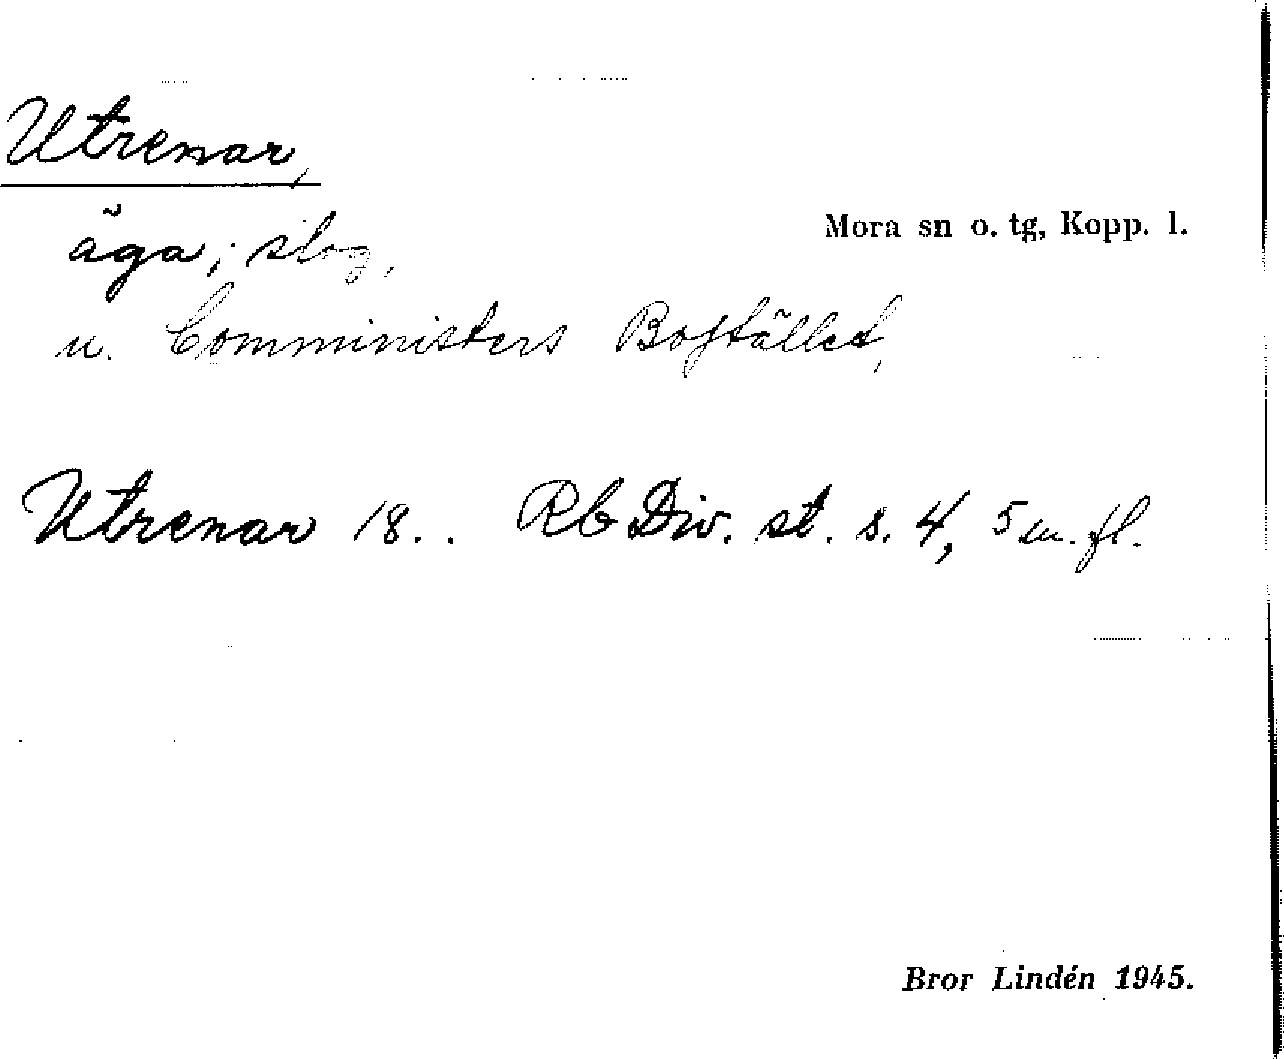 Utrenar,
äga; slog,
Mora sn o. tg, Kopp. l.
u. Comministers Boställed,
Utrenar 18.. Rb Div. st. s. 4, 5 m. fl.
Bror Lindén 1945.